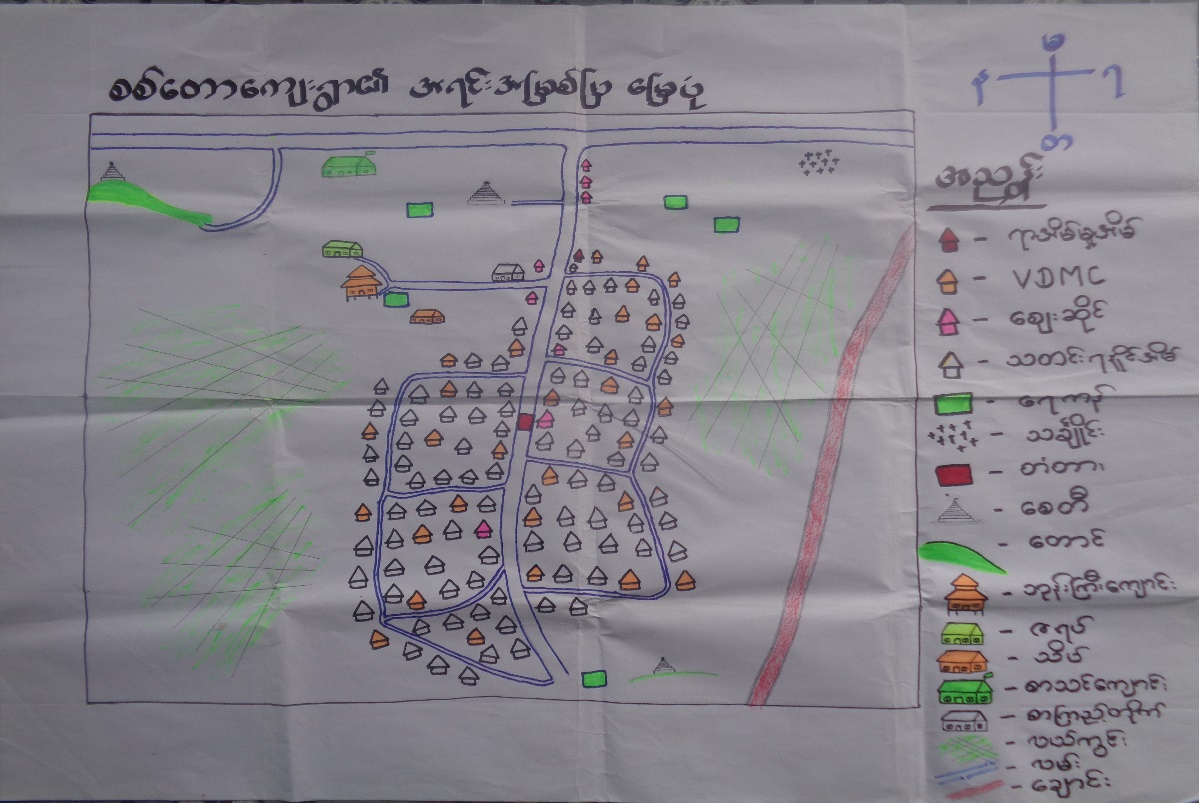 စစ်တောကျေးရွာ၏ အရင်းအမြစ်ပြ မြေပုံ
မ
န
ရ
တ
အညွှန်း
ရာအိမ်မှူးအိမ်
- VDMC
- ဈေးဆိုင်
- သတင်းရပိုင်အိမ်
- ရေကန်
- သင်္ချိုင်း
- တံတား
- စေတီ
- တောင်
- ဘုန်းကြီးကျောင်း
- ဇရပ်
- သိမ်
- စာသင်ကျောင်း
- စာကြည့်တိုက်
- လယ်ကွင်း
- လမ်း
- ချောင်း